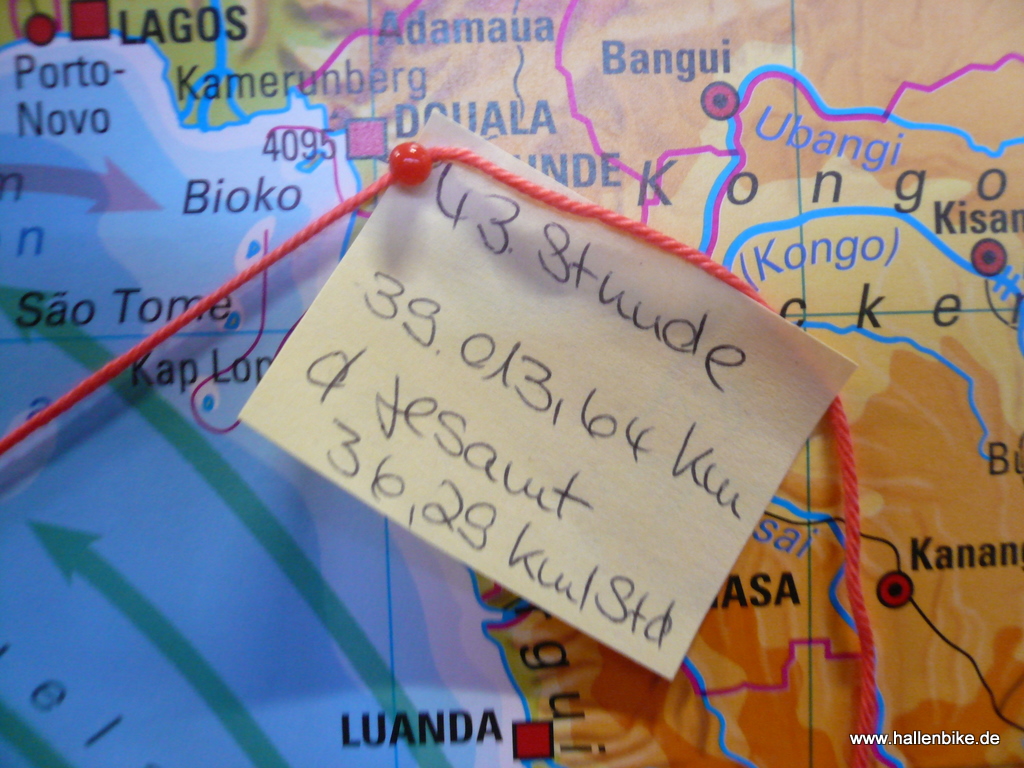 LAGOS
Adamaua
Porto-
Novo
Kamerunberg
Bangui
DOUALA
4095
Ubangi
Bioko
Kongo
Kisan
(Kongo)
São Tomé
Kap Lop
43. Stunde
39.013,64 km
∅ gesamt
36,29 km/Std
Kanang
LUANDA
www.hallenbike.de